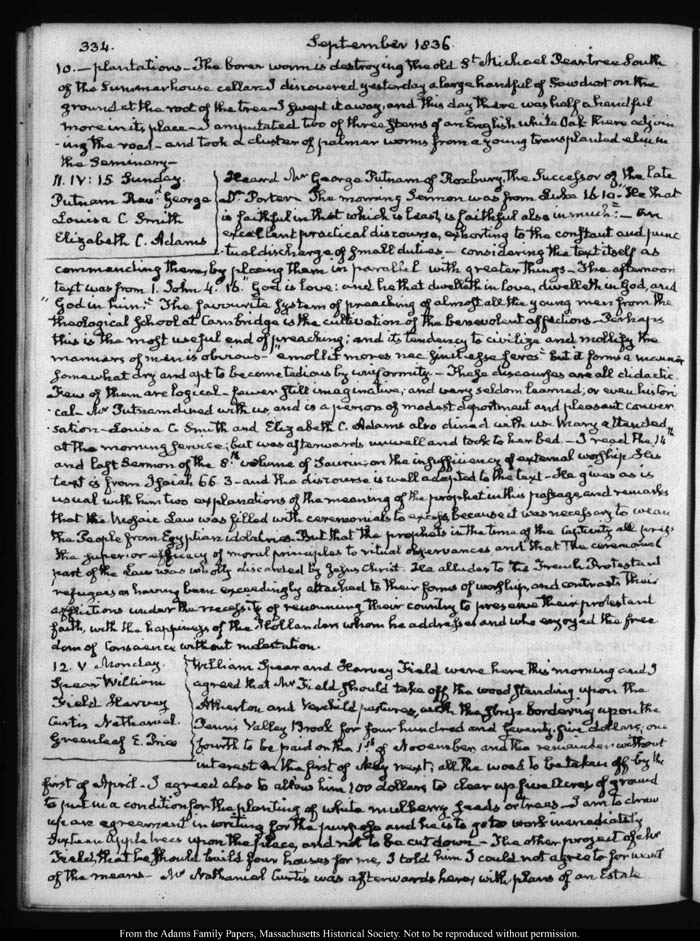 334.
September 1836.
10.— plantations— The borer worm is destroying the old St Michael Peartree South
of the Summerhouse cellar— I discovered yesterday a large handful of Sawdust on the
ground at the root of the tree— I swept it away, and this day there was half a handful
more in its place— I amputated two of three stems of an English white Oak there adjoin
-ing the road— and took a cluster of palmer worms from a young transplanted elm in
the Seminary—
11. IV: 15 Sunday.
Putnam Revd. George
Louisa C. Smith
Elizabeth C. Adams
Heard Mr George Putnam of Roxbury, the Successor of the late
Dr Porter. The morning Sermon was from Luke 16. 10. "He that
is faithful in that which is least, is faithful also in much:"— an
excellent practical discourse, exhorting to the constant and punc
-tual discharge of small duties— considering the text itself as
commanding them, by placing them in parallel with greater things— The afternoon
text was from 1. John. 4. 16. "God is love: and he that dwelleth in love, dwelleth in God, and
"God in him." The favourite system of preaching of almost all the young men from the
theological School at Cambridge is the cultivation of the benevolent affections— Perhaps
this is the most useful end of preaching; and its tendency to civilize and mollify the
manners of men is obvious— "emollit mores nec sinit esse feros" but it forms a manner
somewhat dry and apt to become tedious by uniformity— These discourses are all didactic.
Few of them are logical— fewer still imaginative; and very seldom learned, or even histori
-cal. Mr Putnam dined with us, and is a person of modest deportment and pleasant conver
-sation— Louisa C. Smith and Elizabeth C. Adams also dined with us. Mary attended
at the morning service; but was afterwards unwell and took to her bed— I read the 14th
and last Sermon of the 8th volume of Saurin on the insufficiency of external worship. His
text is from Isaiah 66. 3— and the discourse is well adapted to the text— He gives as is
usual with him two explanations of the meaning of the prophet in this passage and remarks
that the Mosaic Law was filled with ceremonials to excess because it was necessary to wean
the People from Egyptian idolatries. But that the prophets in the time of the Captivity all
the superior efficacy of moral principles to ritual observances and that the ceremonial
part of the Law was wholly discarded by Jesus Christ. He alludes to the French Protestant
refugees as having been exceedingly attached to their forms of worship, and contrasts their
afflictions under the necessity of renouncing their country to preserve their protestant
faith, with the happiness of the Hollanders whom he addresses and who enjoyed the free
dom of Conscience without molestation.
12. V Monday.
Spear William
Field Harvey
Curtis Nathaniel.
Greenleaf E. Price
William Spear and Harvey Field were here this morning and I
agreed that Mr Field should take off the wood standing upon the
Atherton and Verchild pastures, with the strip bordering upon the
Penn's Valley Brook for four hundred and seventy five dollars; one
fourth to be paid on the 1st of November and the remainder without
interest on the first of May next; all the wood to be taken off by the
first of April— I agreed also to allow him 100 dollars to clear up five Acres of ground
to put in a condition for the planting of white mulberry seeds or trees— I am to draw
up an agreement in writing for the purpose and he is to go to work immediately
Sixteen Apple trees upon the place, and not to be cut down— The other project of Mr
Field, that he should build four houses for me, I told him I could not agree to for want
of the means— Mr Nathaniel Curtis was afterwards here, with plans of an Estate
From the Adams Family Papers, Massachusetts Historical Society. Not to be reproduced without permission.